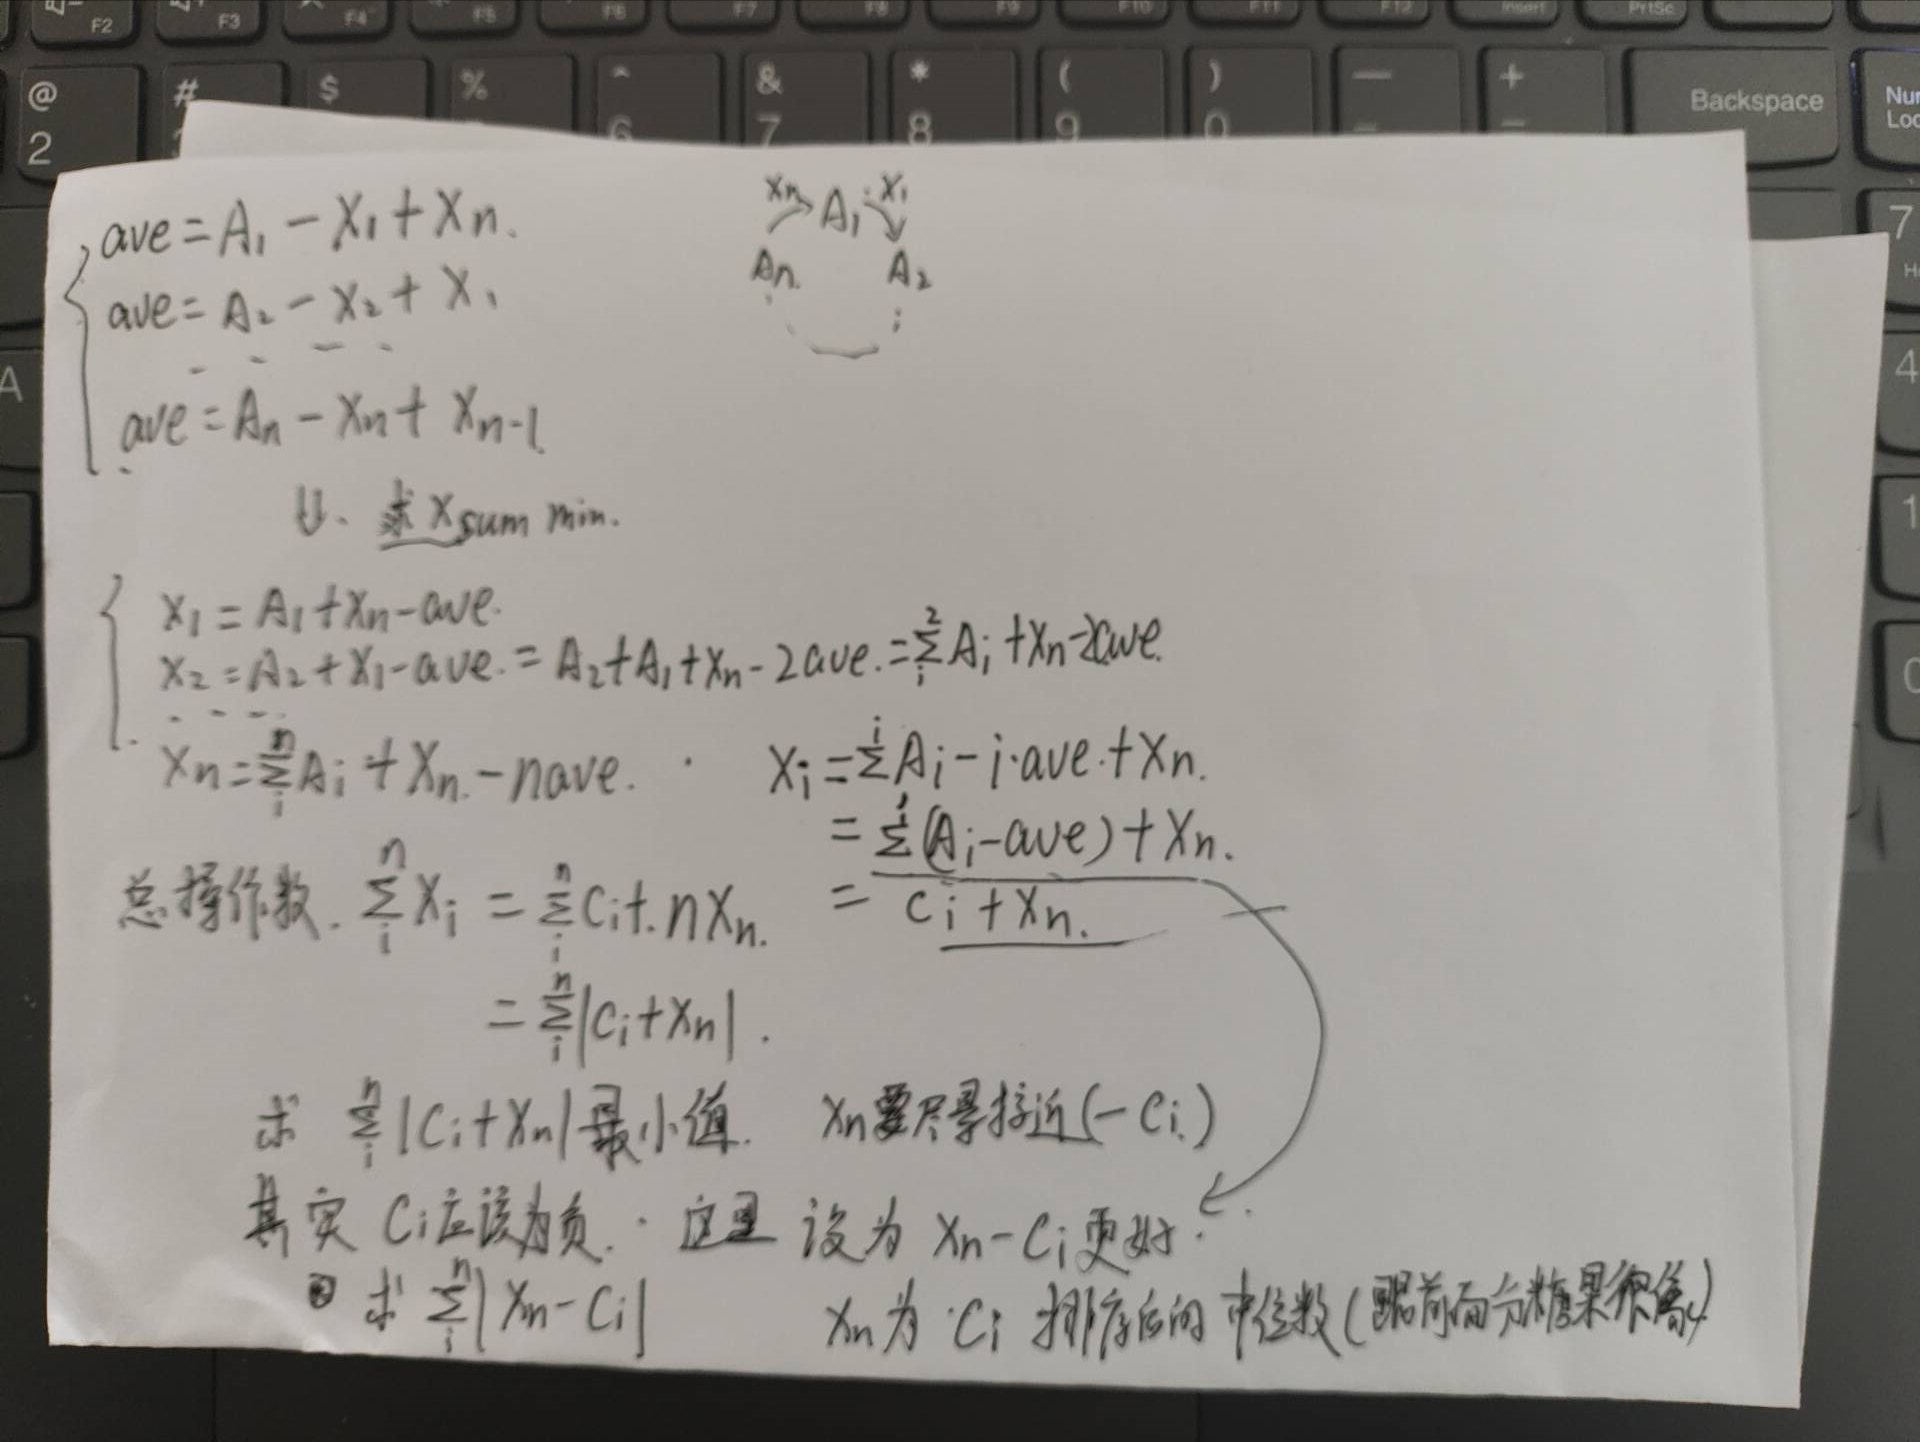 F2 F3 F4 F5 F6 F7 F8 F9 F10 F11 F12 Insert PrtSc
@ # $ % ^ & * ( ) — + Backspace Num
2 6 7 8 9 0 Loc
7
4
1
0
A
ave = A₁ - X₁ + Xn.
ave = A₂ - X₂ + X₁
- - - -
ave = An - Xn + Xn-1
Xn A₁ X₁
An A₂
⇓. 求 Xsum min.
X₁ = A₁ + Xn - ave.
X₂ = A₂ + X₁ - ave. = A₂ + A₁ + Xn - 2ave. = ²Σᵢ Aᵢ + Xn - 2ave.
- - -
Xn = ⁿΣᵢ Aᵢ + Xn. - nave. · Xᵢ = ⁱΣ Aᵢ - i·ave. + Xn.
= ⁱΣ (Aᵢ - ave) + Xn.
总操作数. ⁿΣᵢ Xᵢ = ⁿΣᵢ Cᵢ + . nXn. = Cᵢ + Xn.
= ⁿΣᵢ |Cᵢ + Xn| .
求 ⁿΣᵢ |Cᵢ + Xn| 最小值. Xn要尽量接近(-Cᵢ)
其实 Cᵢ应该为负. · 这里 设为 Xn - Cᵢ 更好.
求 ⁿΣᵢ |Xn - Cᵢ| Xn为 Cᵢ 排序后的 中位数 (跟前面分糖果很像)